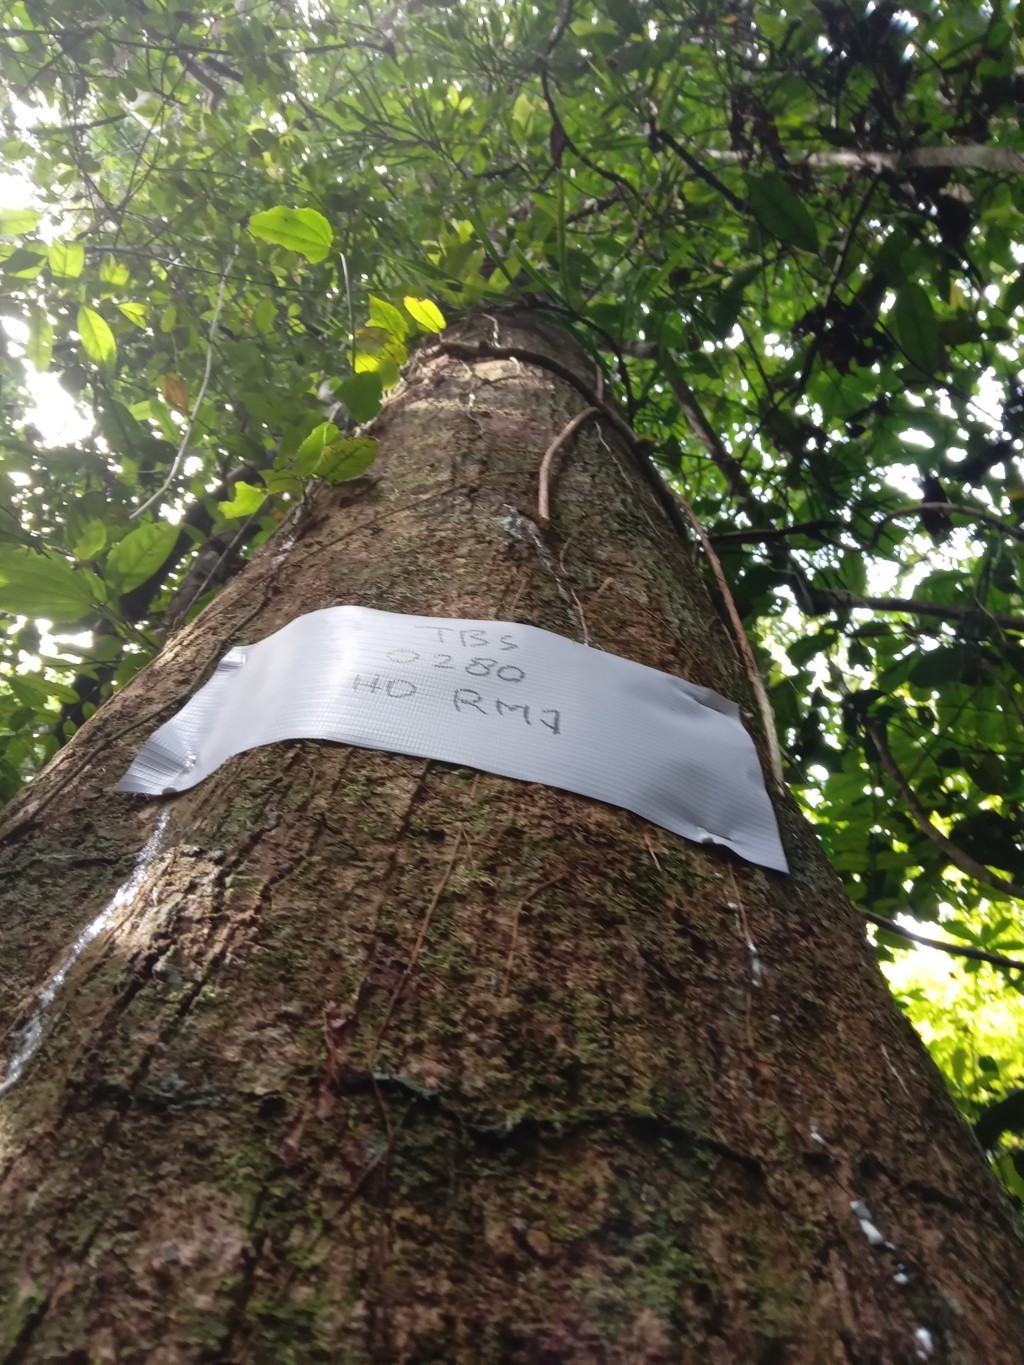 TBS
0280
HO RMJ